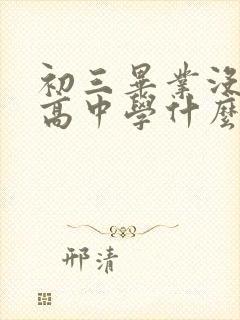 初三畢業沒
高中學什麼
邢清